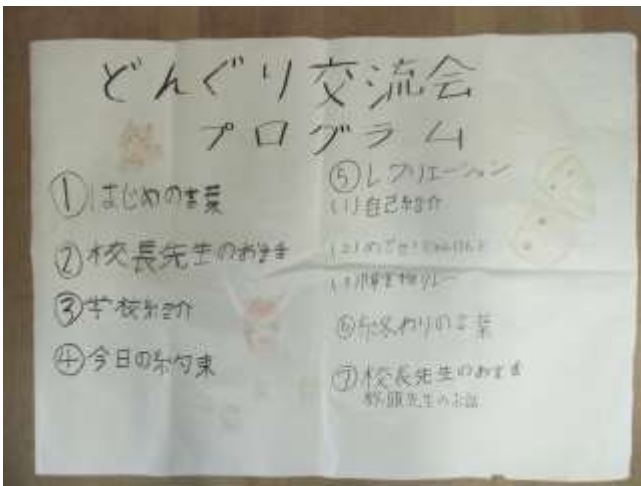 どんぐり交流会
プログラム
①はじめの言葉
②校長先生のお話
③学校紹介
④今日の約束
⑤レクリエーション
(1)自己紹介
(2)めざせ！
(3)リレー
⑥終わりの言葉
⑦校長先生のお話
教頭先生のお話